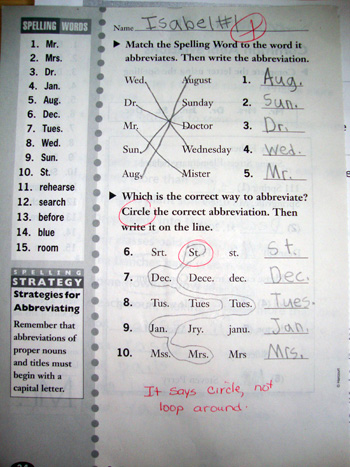 SPELLING WORDS
1. Mr.
2. Mrs.
3. Dr.
4. Jan.
5. Aug.
6. Dec.
7. Tues.
8. Wed.
9. Sun.
10. St.
11. rehearse
12. search
13. before
14. blue
15. room
SPELLING
STRATEGY
Strategies for
Abbreviating
Remember that
abbreviations of
proper nouns
and titles must
begin with a
capital letter.
Name Isabel #1
Match the Spelling Word to the word it
abbreviates. Then write the abbreviation.
Wed. August 1. Aug.
Dr. Sunday 2. Sun.
Mr. Doctor 3. Dr.
Sun. Wednesday 4. Wed.
Aug. Mister 5. Mr.
Which is the correct way to abbreviate?
Circle the correct abbreviation. Then
write it on the line.
6. Srt. St. st. s.t.
7. Dec. Dece. dec. Dec.
8. Tus. Tues Tues. Tues.
9. Jan. Jry. janu. Jan.
10. Mss. Mrs. Mrs Mrs.
It says circle, not
loop around.